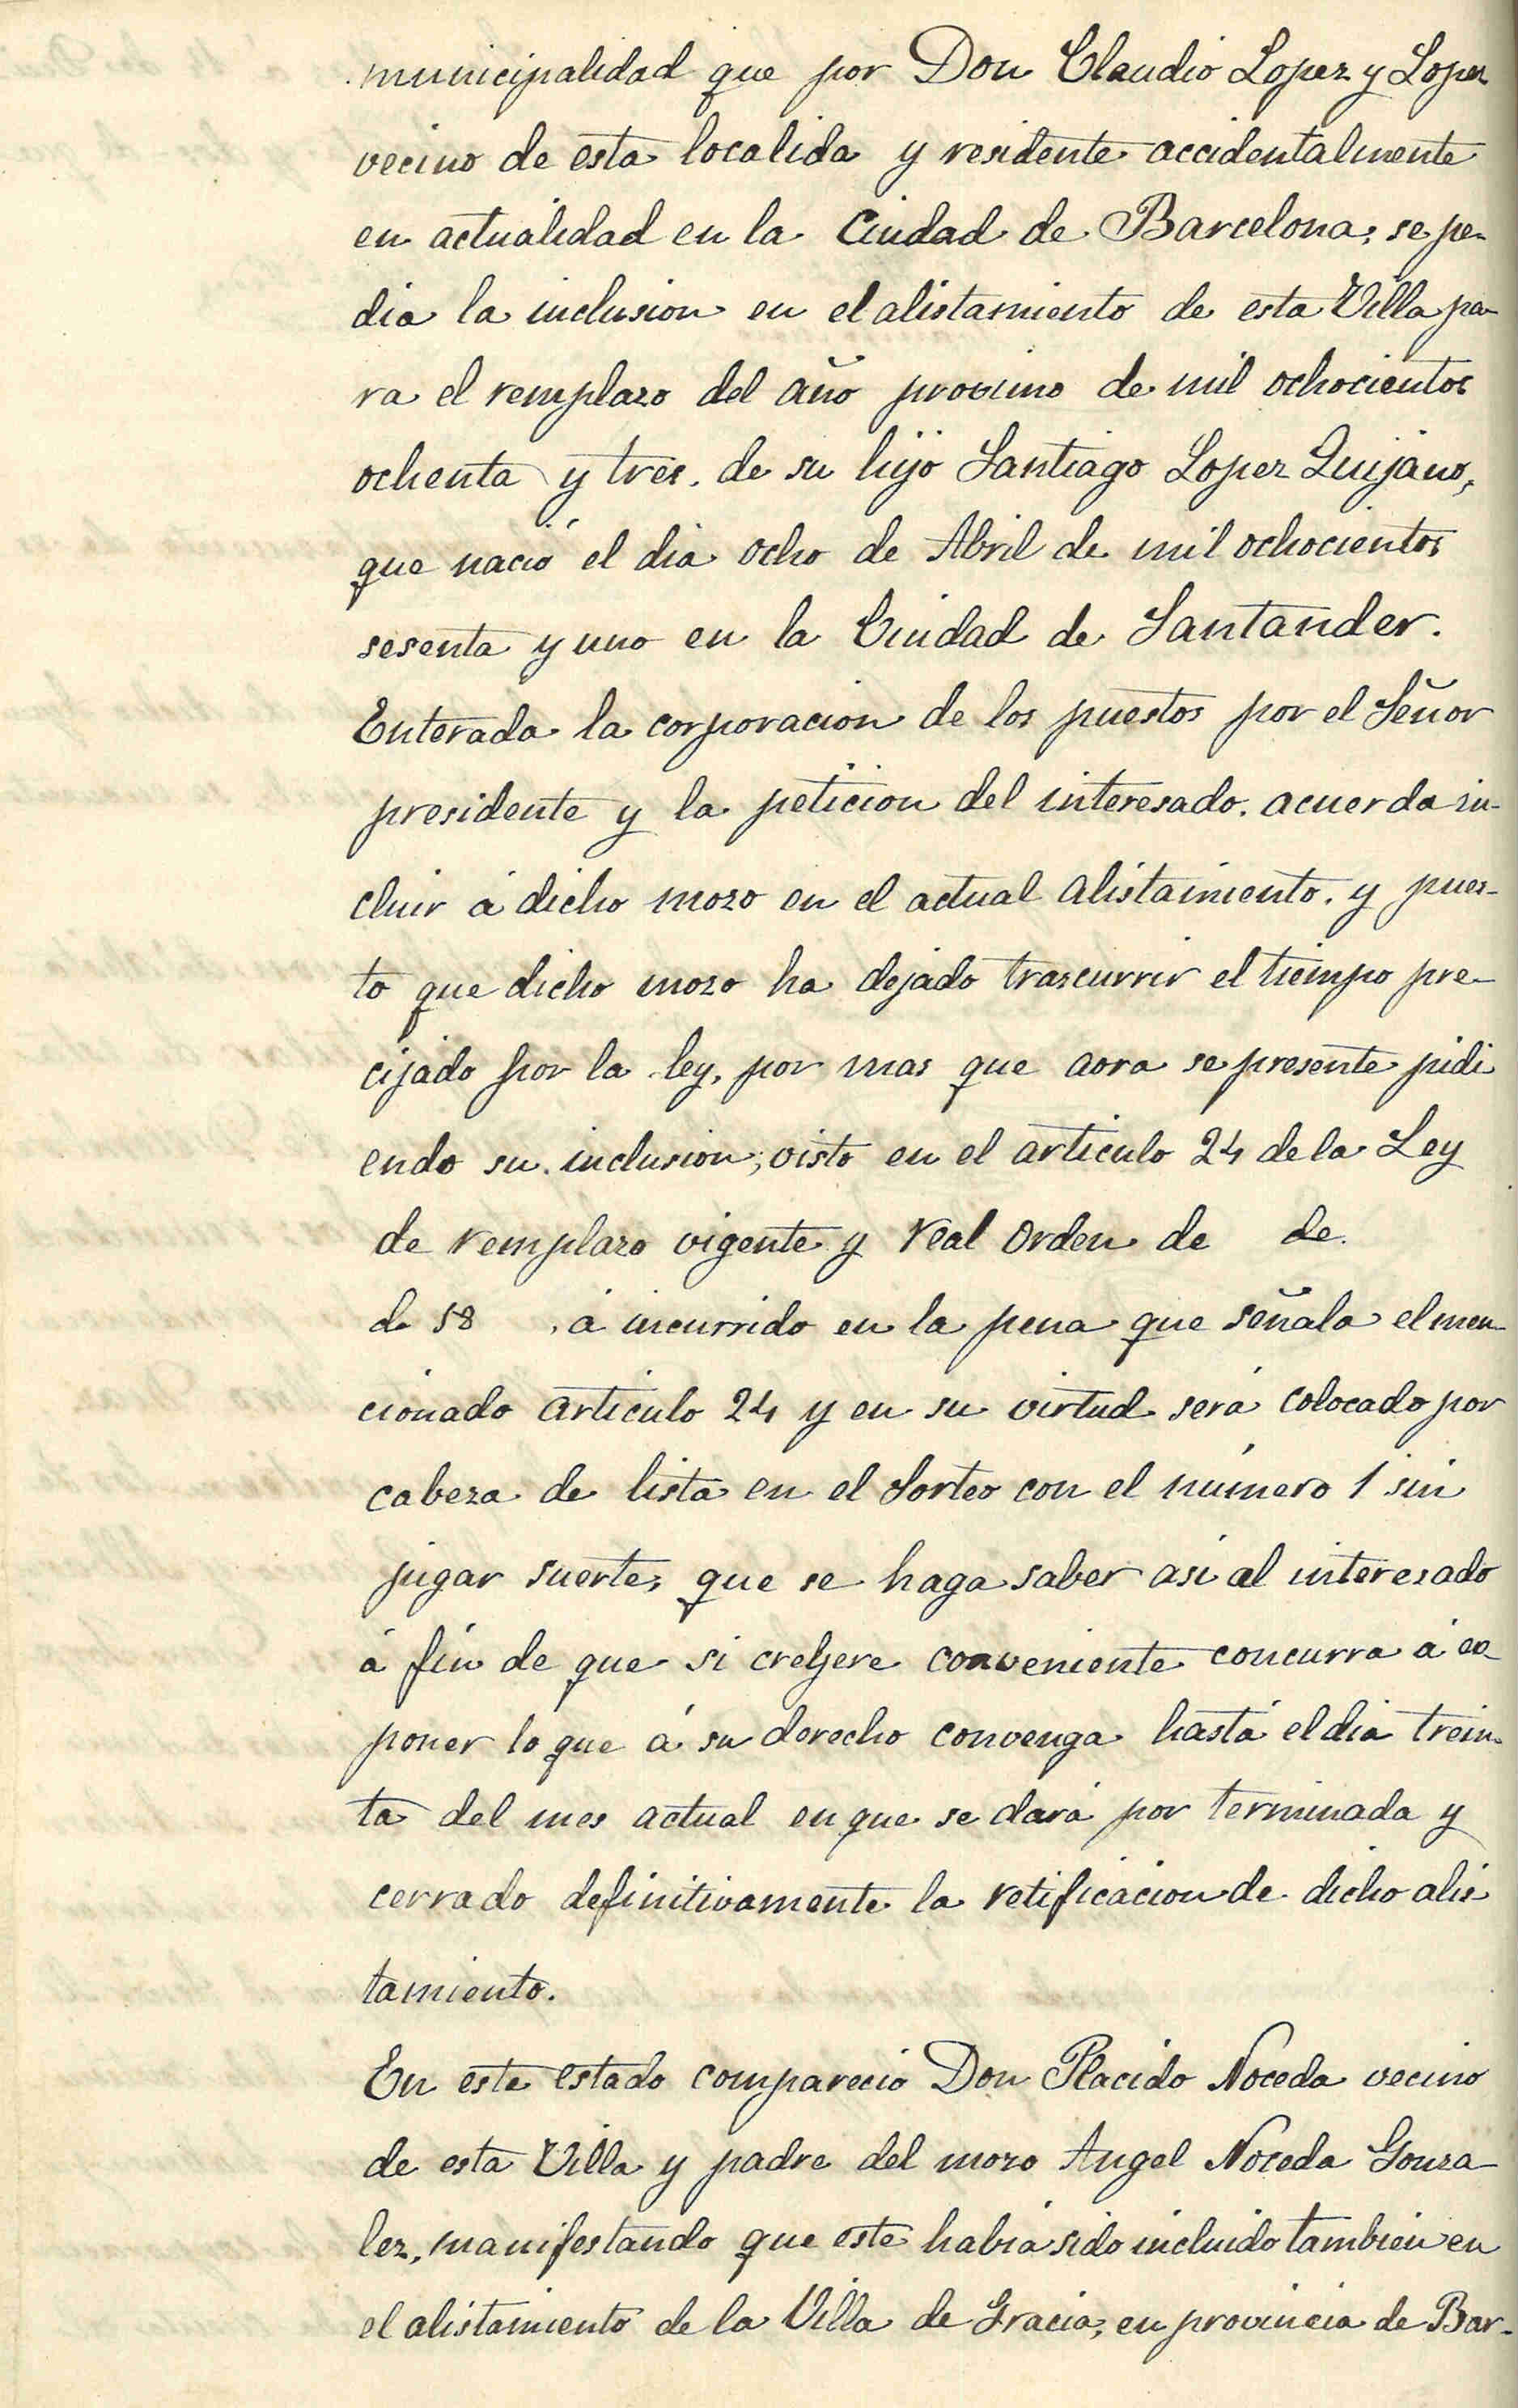 municipalidad que por Don Claudio Lopez y Lopez
vecino de esta localida y residente accidentalmente
en actualidad en la Ciudad de Barcelona; se pe-
dia la inclusion en el alistamiento de esta Villa pa-
ra el remplazo del año procsimo de mil ochocientos
ochenta y tres. de su hijo Santiago Lopez Quijano,
que nació el dia ocho de Abril de mil ochocientos
sesenta y uno en la Ciudad de Santander.
Enterada la corporacion de los puestos por el Señor
presidente y la peticion del interesado. acuerda in-
cluir á dicho mozo en el actual alistamiento. y pues-
to que dicho mozo ha dejado trascurrir el tiempo pre-
cijado por la ley, por mas que aora se presente pidi
endo su inclusion; visto en el articulo 24 de la Ley
de remplazo vigente y real orden de de
de 18 , á incurrido en la pena que señala el men-
cionado articulo 24 y en su virtud será colocado por
cabeza de lista en el Sorteo con el número 1 sin
jugar suerte, que se haga saber asi al interesado
á fin de que si creyere conveniente concurra á es-
poner lo que á su derecho convenga hasta el dia trein-
ta del mes actual en que se dará por terminada y
cerrado definitivamente la retificacion de dicho alis
tamiento.
En este estado compareció Don Placido Noceda vecino
de esta Villa y padre del mozo Angel Noceda Gonza-
lez, manifestando que este habia sido incluido tambien en
el alistamiento de la Villa de Gracia, en provincia de Bar-